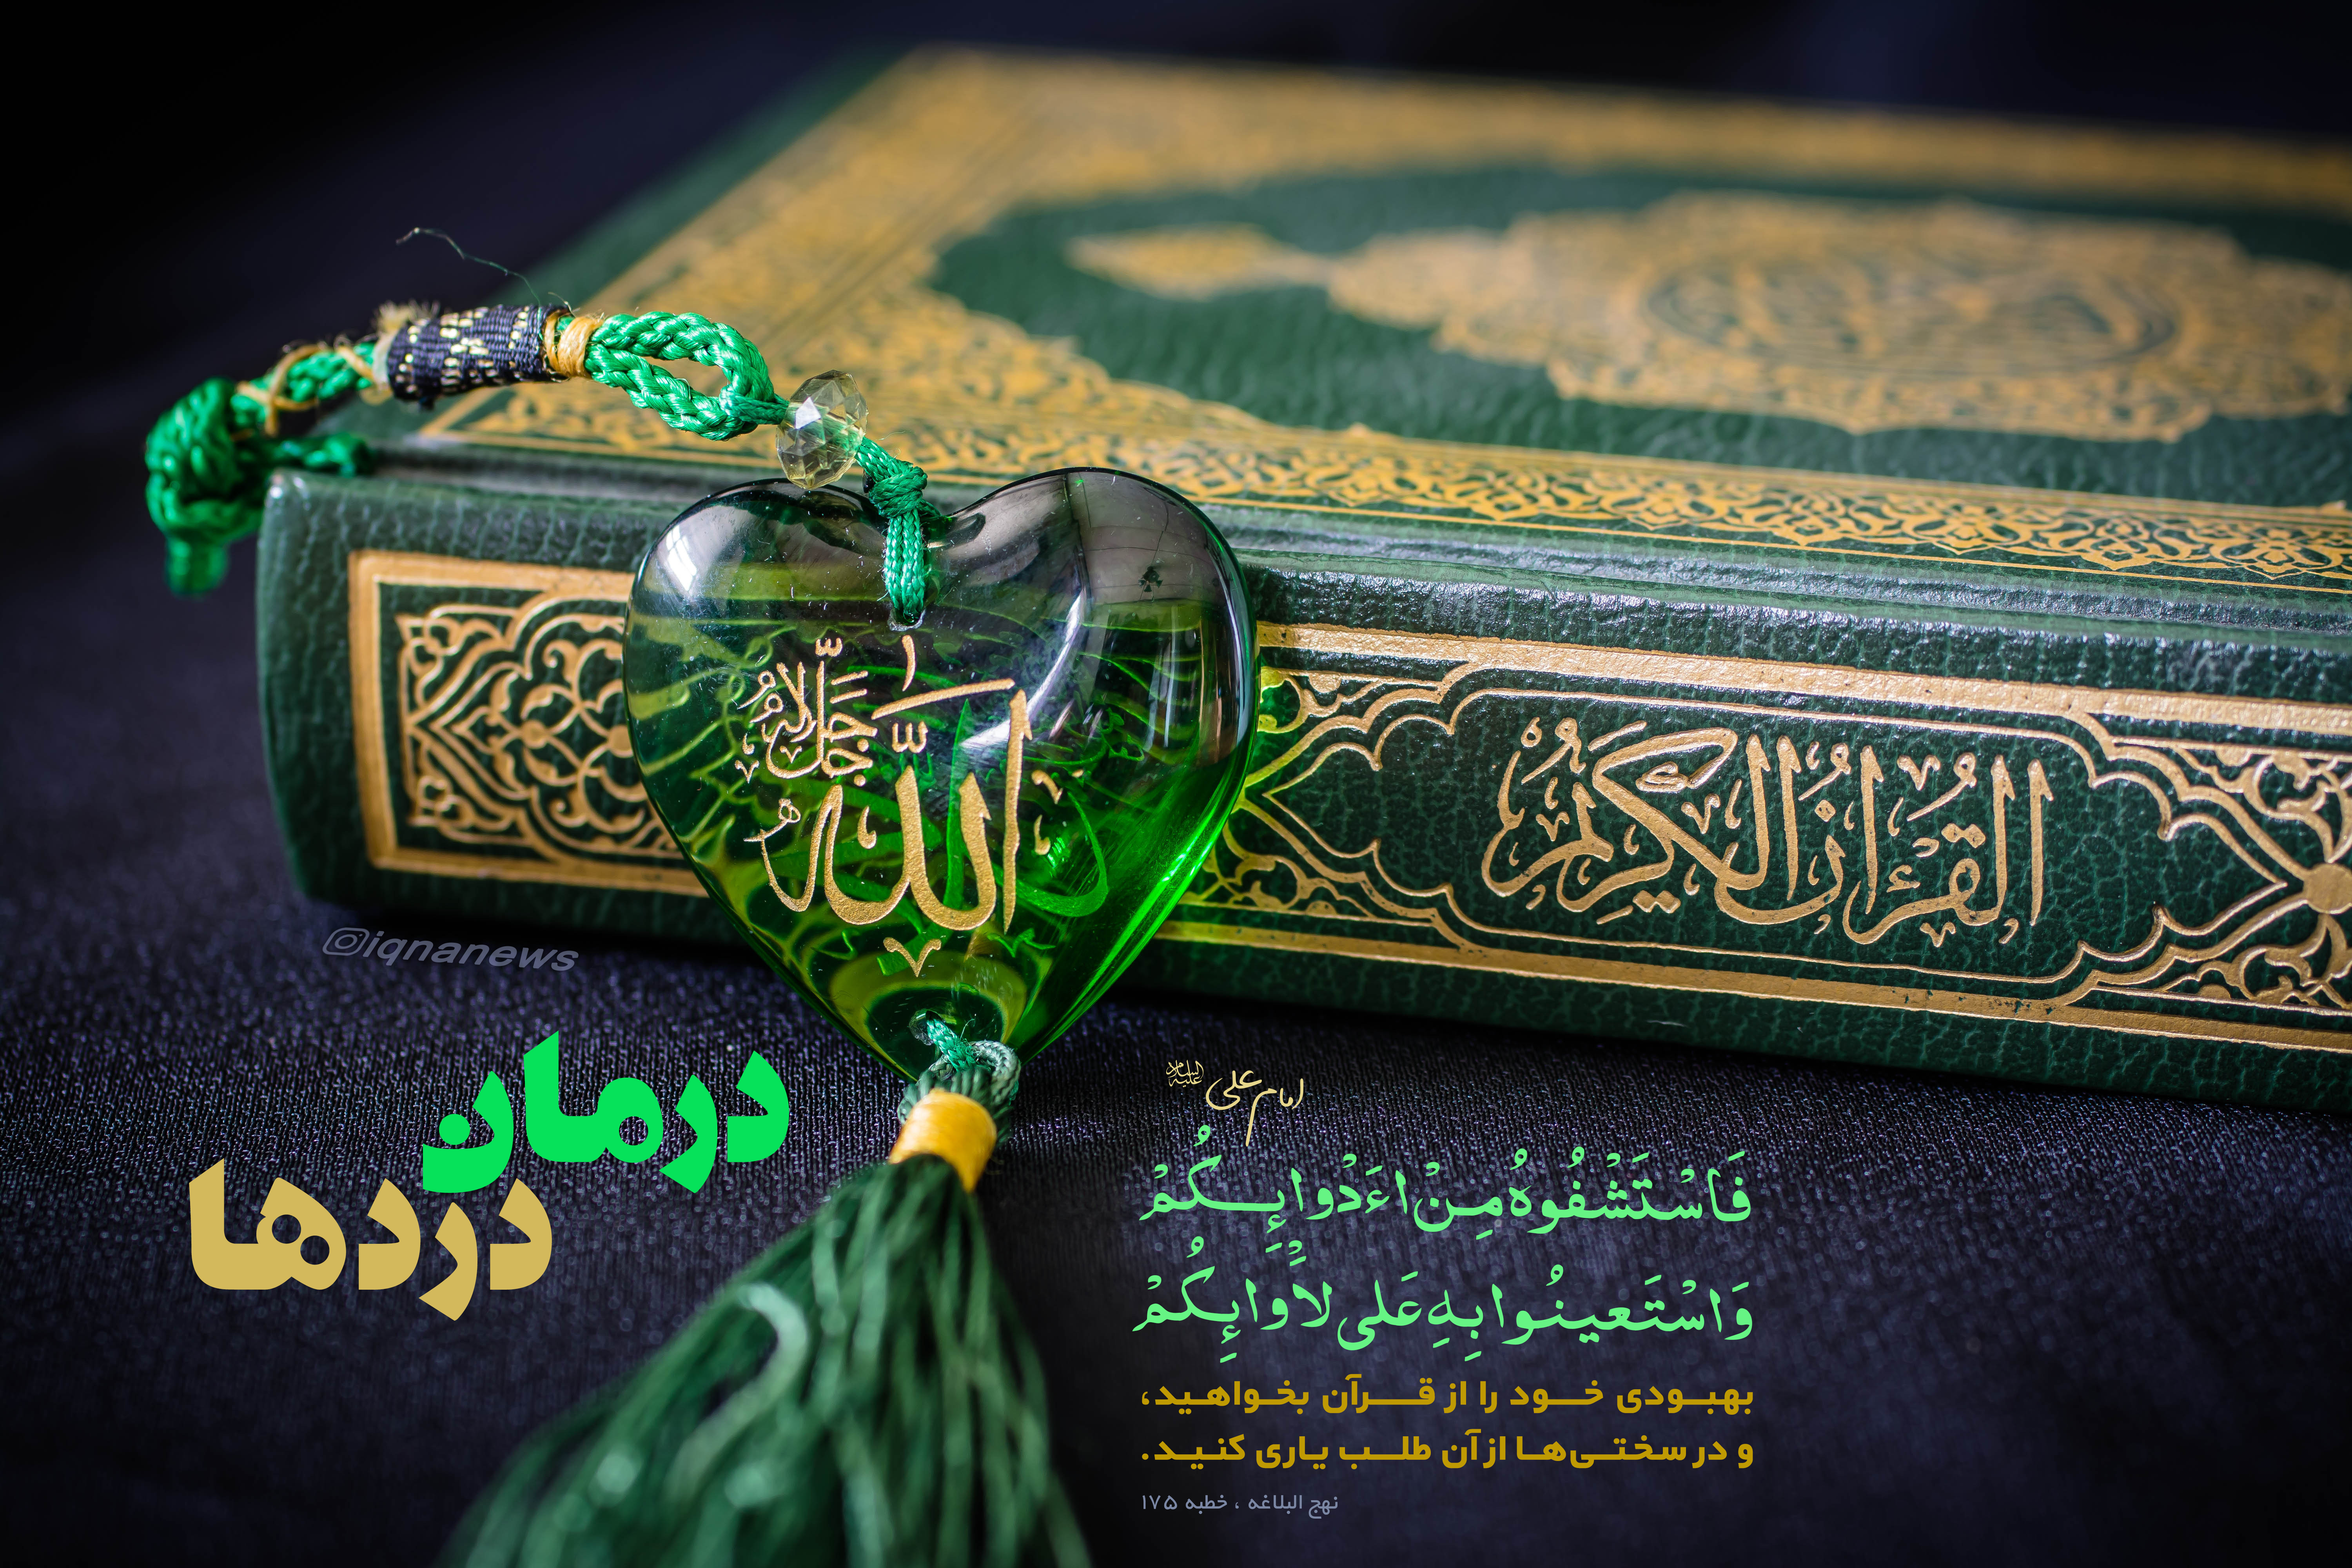 القرآن الكريم
الله جل جلاله
@iqnanews
درمان
دردها
امام علی علیه السلام
فَاسْتَشْفُوهُ مِنْ اءَدْوائِكُمْ
وَاسْتَعينُوا بِهِ عَلى لاَْوائِكُمْ
بهبودی خود را از قرآن بخواهید،
و در سختی‌ها از آن طلب یاری کنید.
نهج البلاغه ، خطبه ۱۷۵